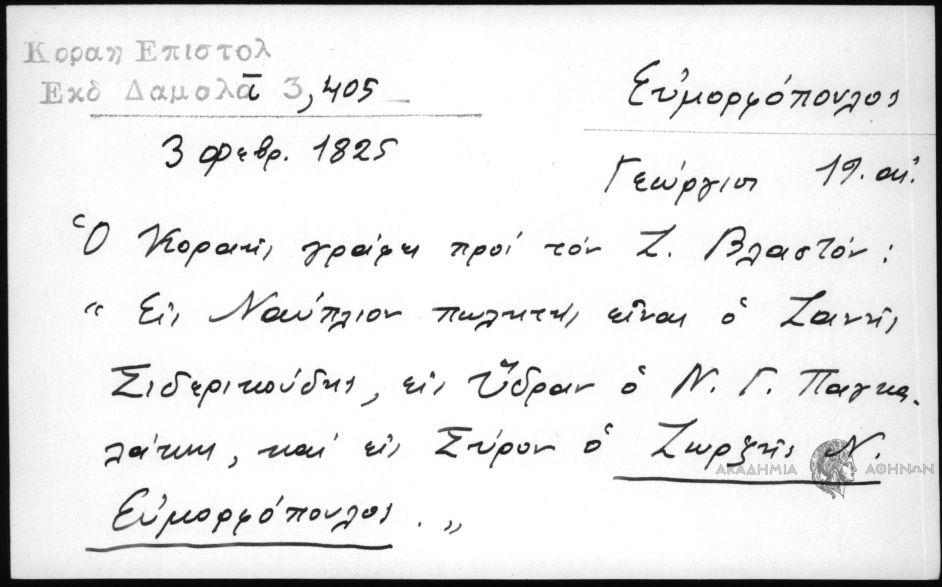 Κοραη Επιστολ
Εκδ Δαμαλᾶ 3, 405
Εὐμορφόπουλος
3 Φεβρ. 1825
Γεώργιος 19. αἰ.
Ὁ Κοραῆς γράφει πρὸς τὸν Ζ. Βλαστόν:
“ Εἰς Ναύπλιον πωλητὴς εἶναι ὁ Ζαννῆς
Σιδερικούδης, εἰς Ὕδραν ὁ Ν. Γ. Παγκα-
λάκης, καὶ εἰς Σύρον ὁ Ζωρζῆς Ν.
Εὐμορφόπουλος. „
ΑΚΑΔΗΜΙΑ ΑΘΗΝΩΝ